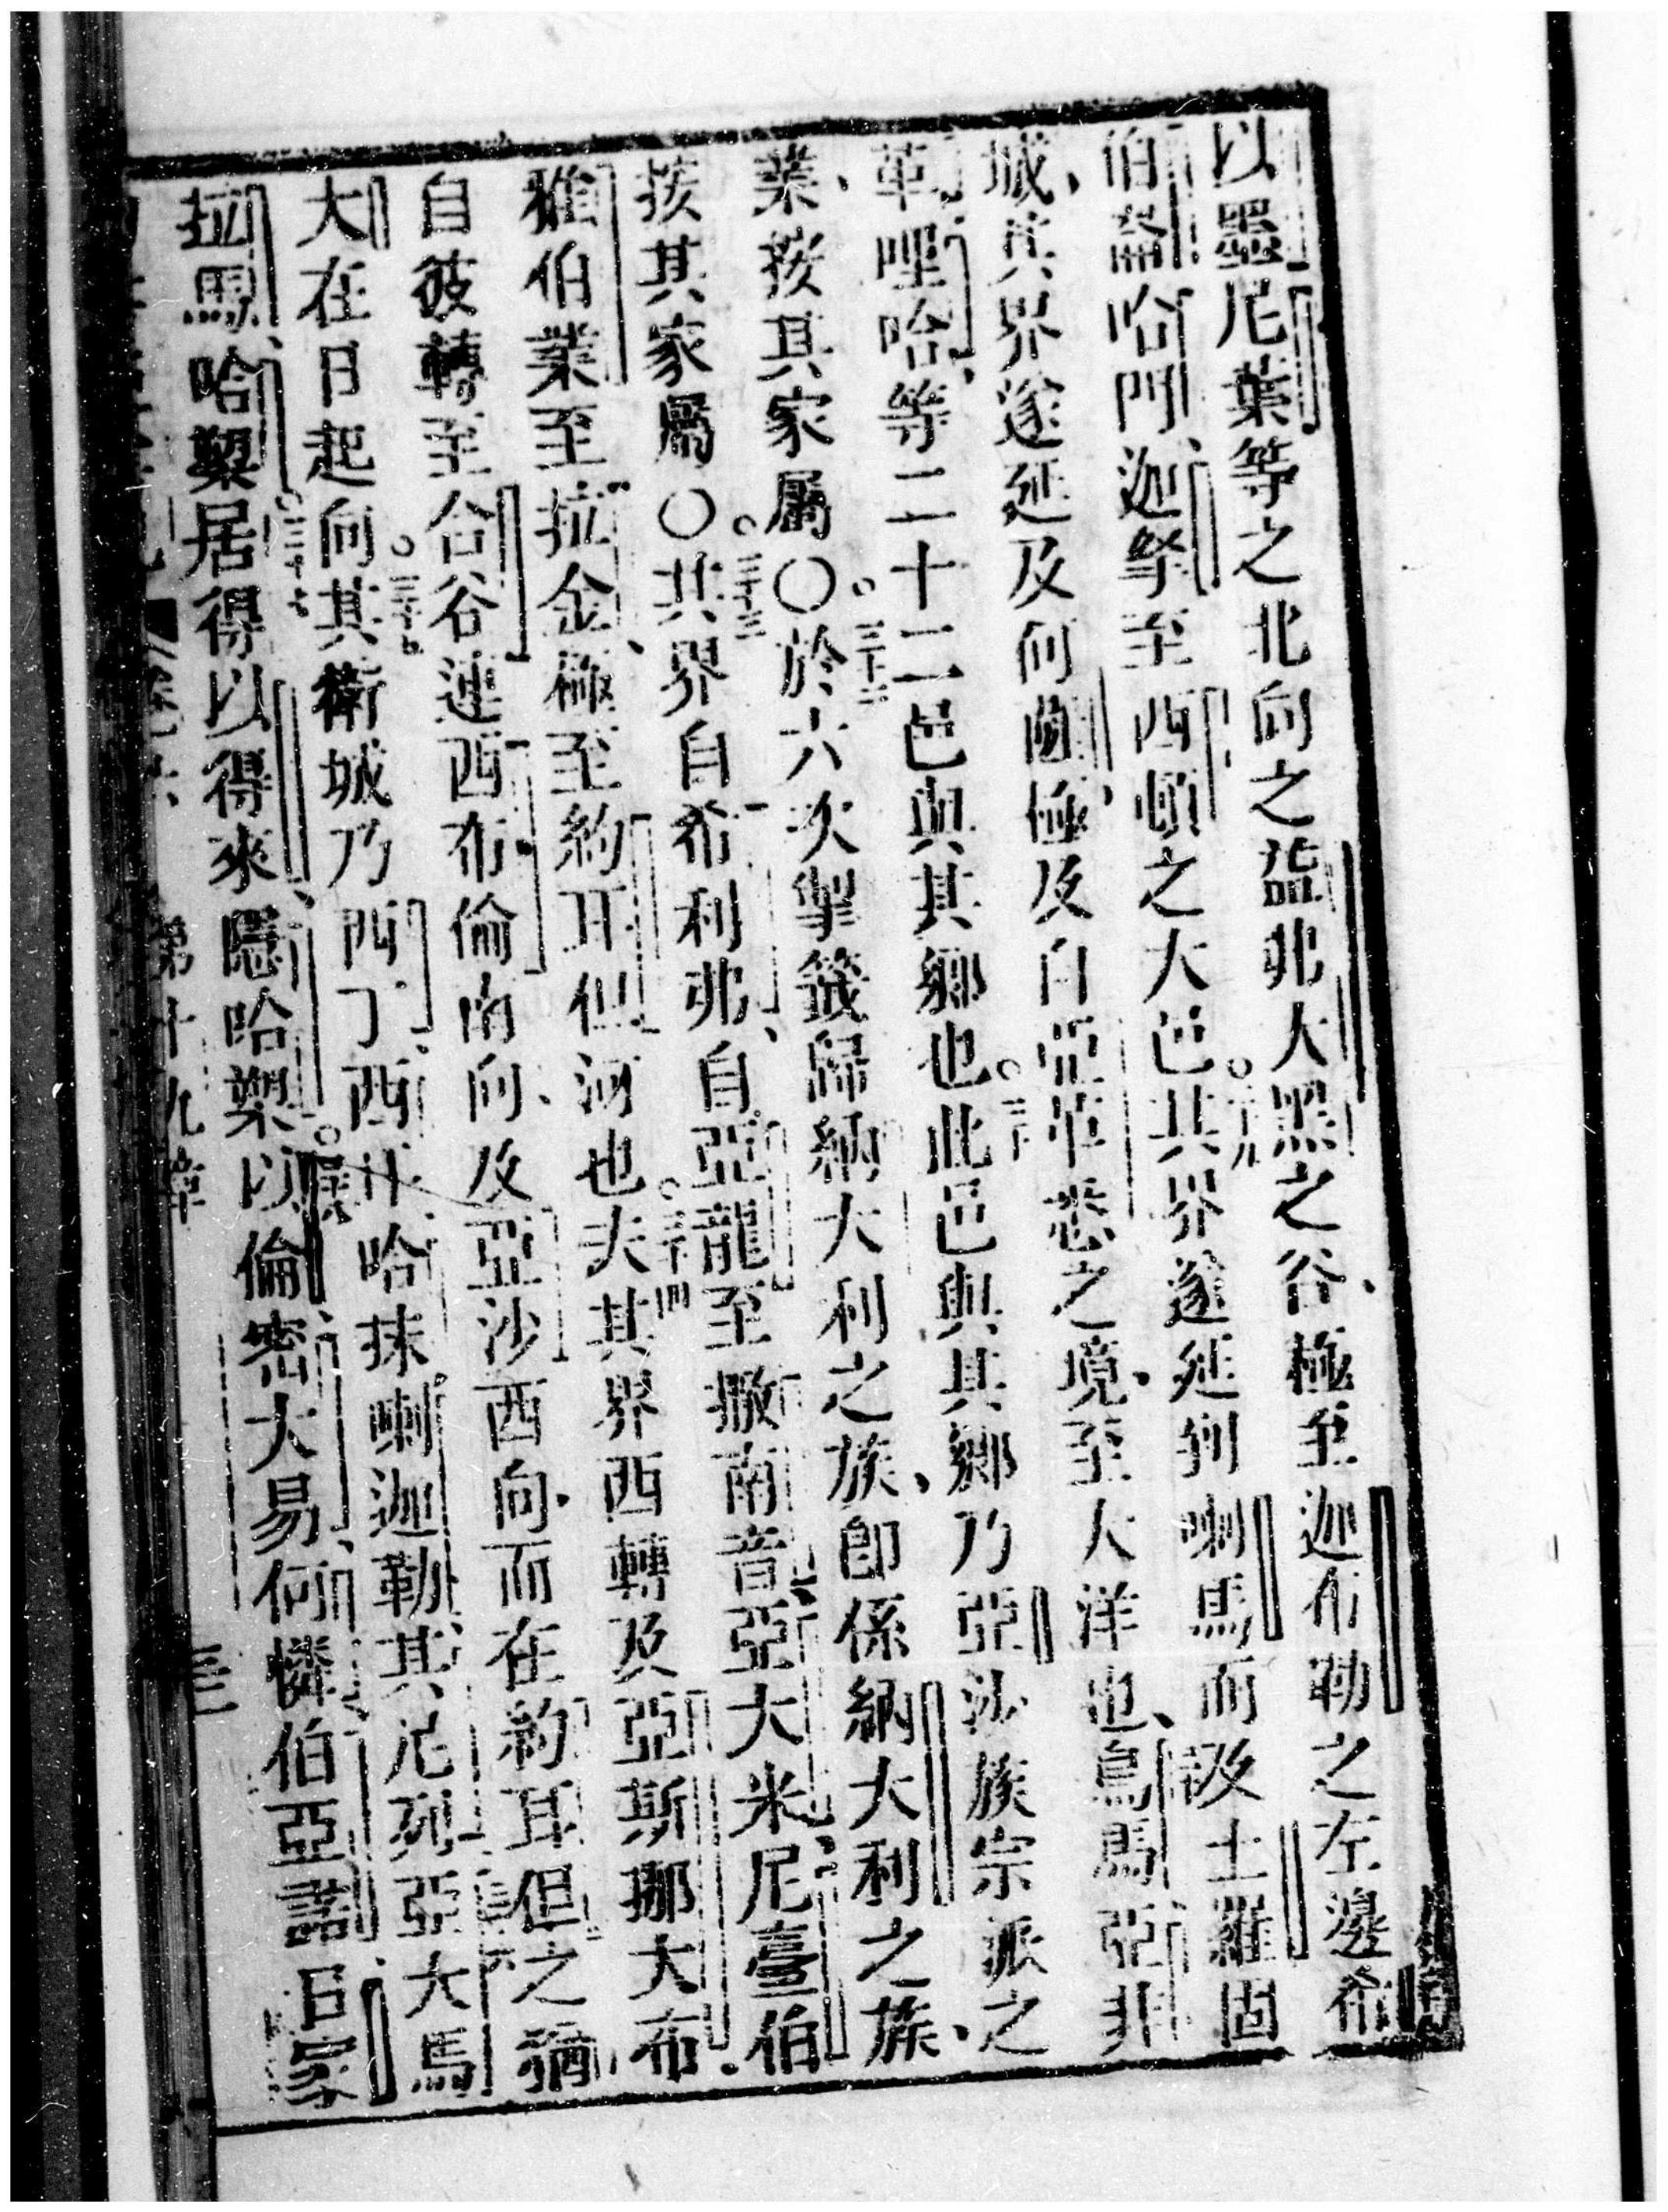 以墨尼葉等之北向之諡弗大黑之谷、極至迦布勒之左邊希
伯崙哈門、迦拏至西頓之大邑。二十九其界遂延到喇馬而及士羅固
城、其界遂延及何薗、極及自亞革悉之境、至大洋也、烏馬、亞非
革、哩哈、等二十二邑與其鄉也。三十此邑與其鄉乃亞沙族宗派之
業、按其家屬。三十二〇於六次掣籤歸納大利之族、即係納大利之族、
按其家屬。三十三〇其界自希利弗、自亞龍至撒南音、亞大米尼臺伯
雅伯業至拉金、極至約耳但河也。三十四夫其界西轉及亞斯挪大布、
自彼轉至合谷連西布倫南向、及亞沙西向、而在約耳但之猶
大在日起向。三十五其衛城乃西丁、西耳、哈抹、喇迦勒、其尼列、亞大馬
拉馬、哈槊三十七居得以得來、隱哈槊。三十八以倫、密大易、何憐、伯亞諾、日家
第十九章
三